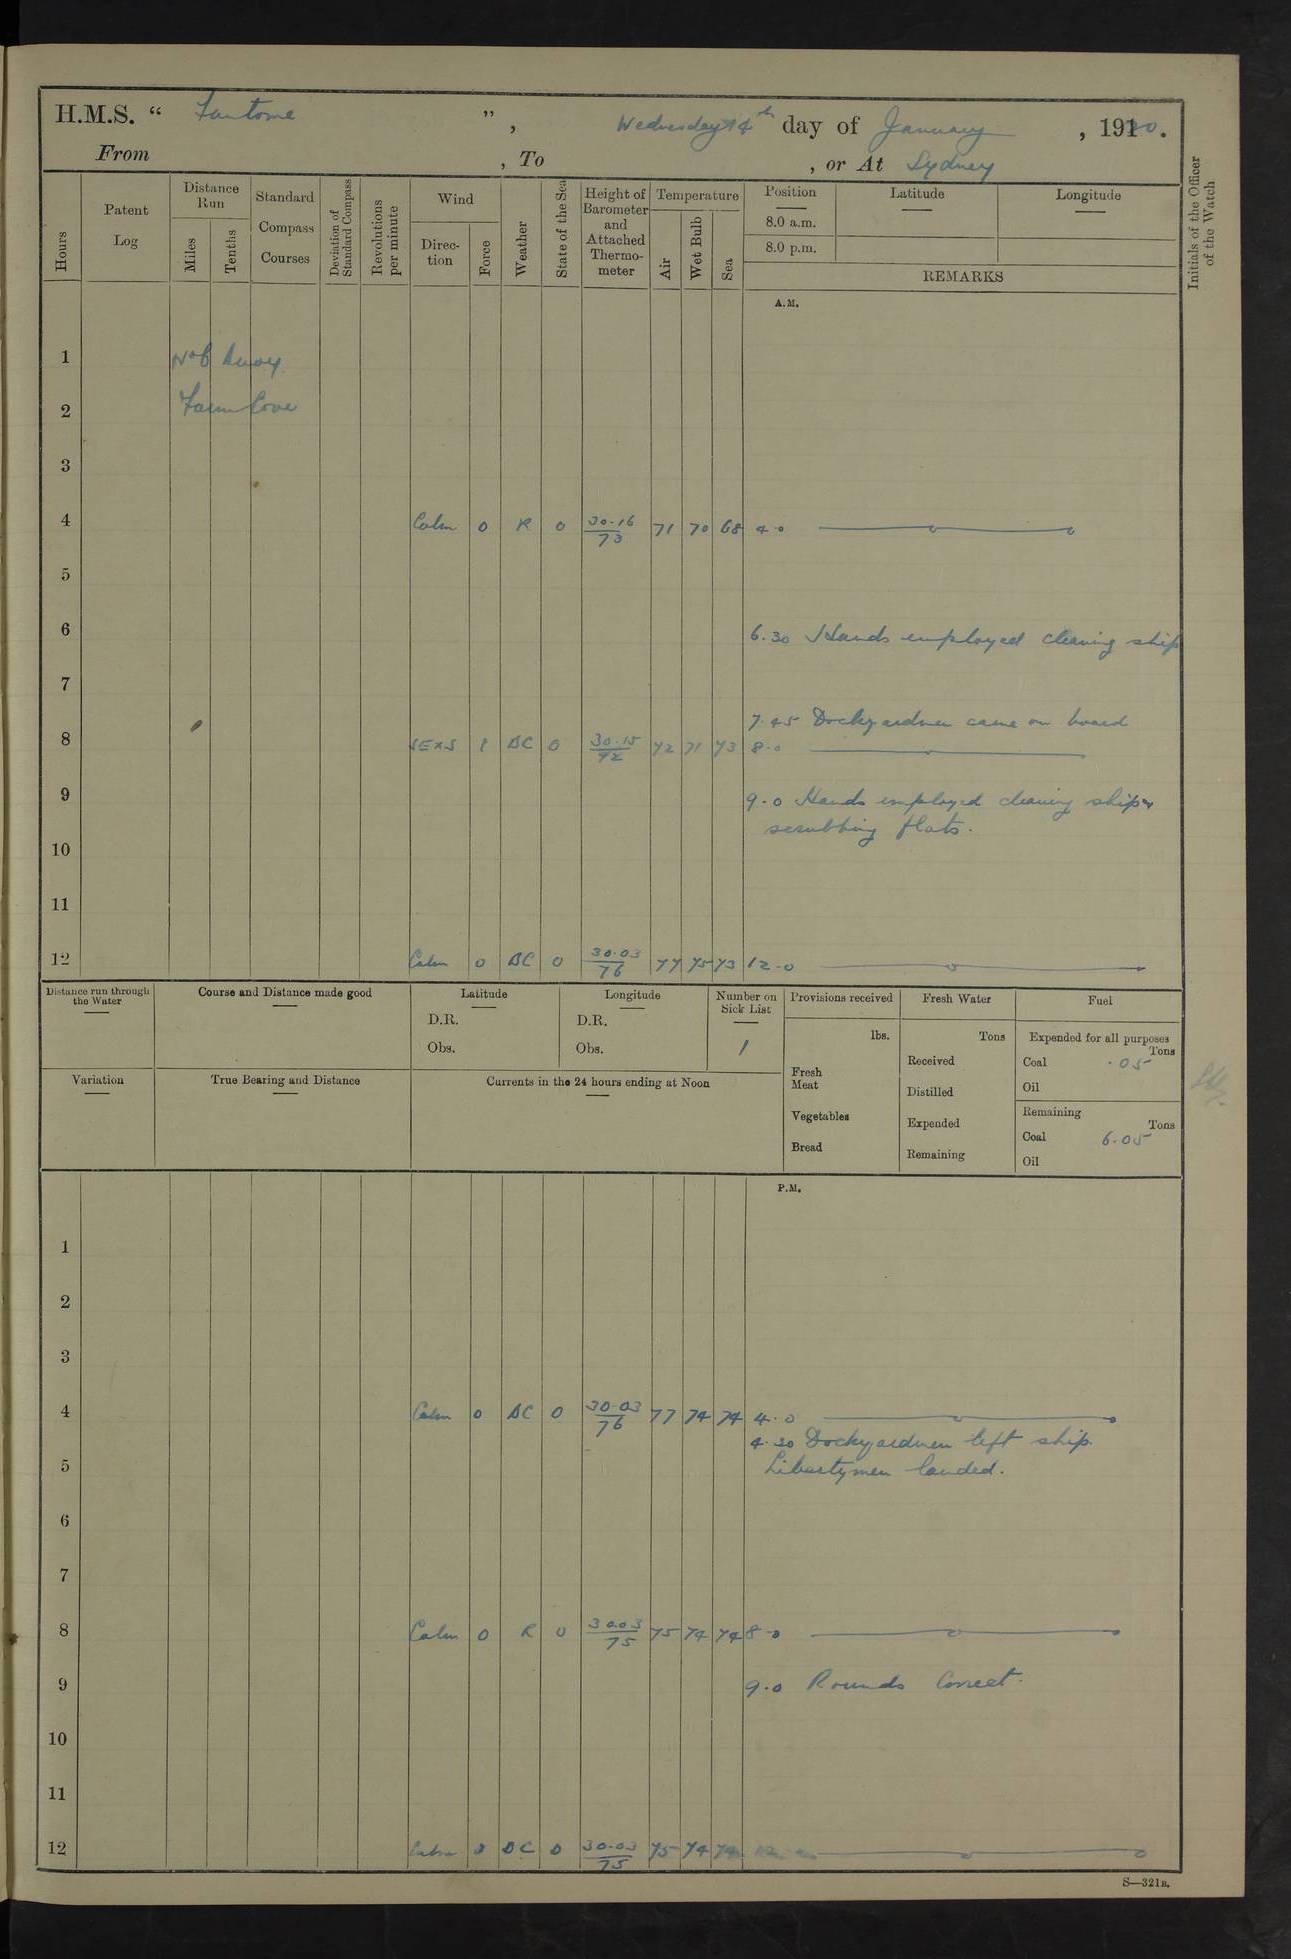 H.M.S. “ Fantome ”, Wednesday 14th day of January, 1920.
From , To , or At Sydney
Hours
Patent Log
Distance Run
Miles
Tenths
Standard Compass Courses
Deviation of Standard Compass
Revolutions per minute
Wind
Direction
Force
Weather
State of the Sea
Height of Barometer and Attached Thermometer
Temperature
Air
Wet Bulb
Sea
Position
8.0 a.m.
8.0 p.m.
Latitude
Longitude
REMARKS
Initials of the Officer of the Watch
A.M.
1 No 6 Buoy
2 Farm Cove
3
4 Calm 0 R 0 30.16/73 71 70 68 4.0
5
6 6.30 Hands employed cleaning ship
7
7.45 Dockyardmen came on board
8 SExS 1 BC 0 30.15/72 72 71 73 8.0
9 9.0 Hands employed cleaning ship &
scrubbing flats.
10
11
12 Calm 0 BC 0 30.03/76 77 75 73 12.0
Distance run through the Water
Course and Distance made good
Latitude
D.R.
Obs.
Longitude
D.R.
Obs.
Number on Sick List
1
Variation
True Bearing and Distance
Currents in the 24 hours ending at Noon
Provisions received
lbs.
Fresh Meat
Vegetables
Bread
Fresh Water
Tons
Received
Distilled
Expended
Remaining
Fuel
Expended for all purposes
Tons
Coal .05
Oil
Remaining
Tons
Coal 6.05
Oil
P.M.
1
2
3
4 Calm 0 BC 0 30.03/76 77 74 74 4.0
4.30 Dockyardmen left ship.
5 Libertymen landed.
6
7
8 Calm 0 R 0 30.03/75 75 74 74 8.0
9 9.0 Rounds Correct.
10
11
12 Calm 0 BC 0 30.03/75 75 74 74 12.0
S—321B.